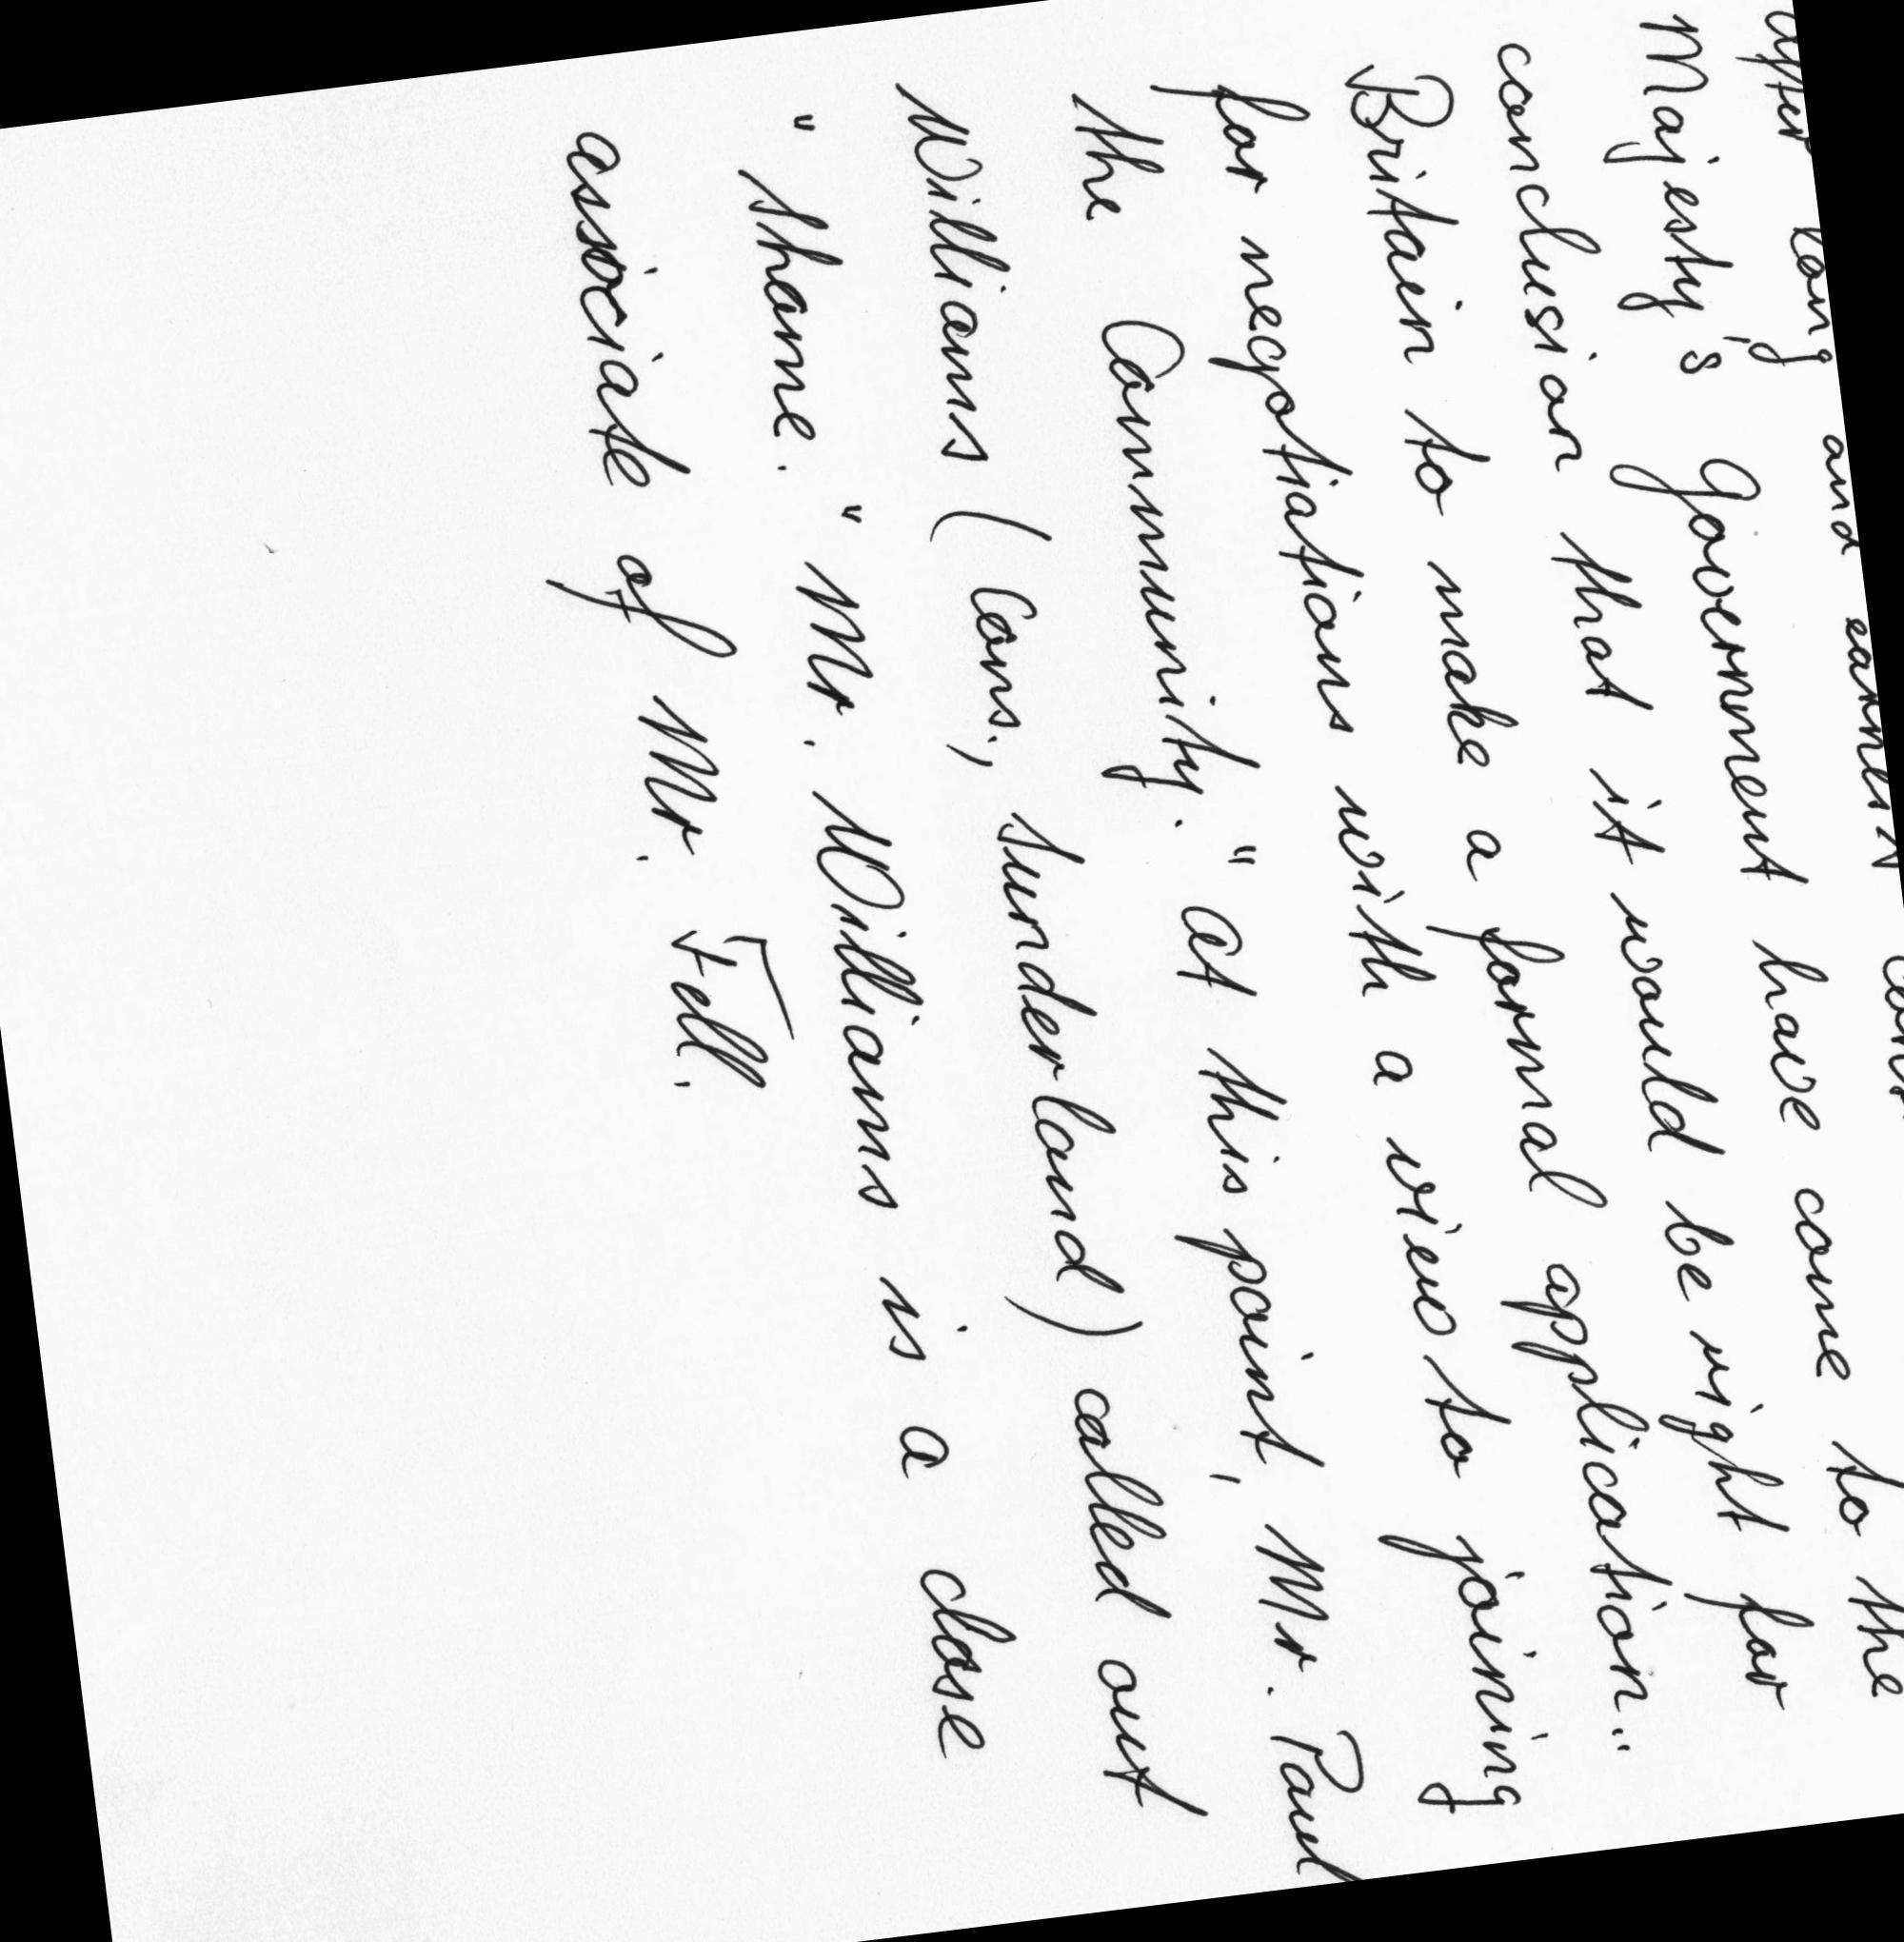 after long and earnest
Majesty's Government have come to the
conclusion that it would be right for
Britain to make a formal application"
for negotiations with a view to joining
the Community." At this point, Mr. Paul
Williams (Cons., Sunderland) called out
"Shame." Mr. Williams is a close
associate of Mr. Fell.